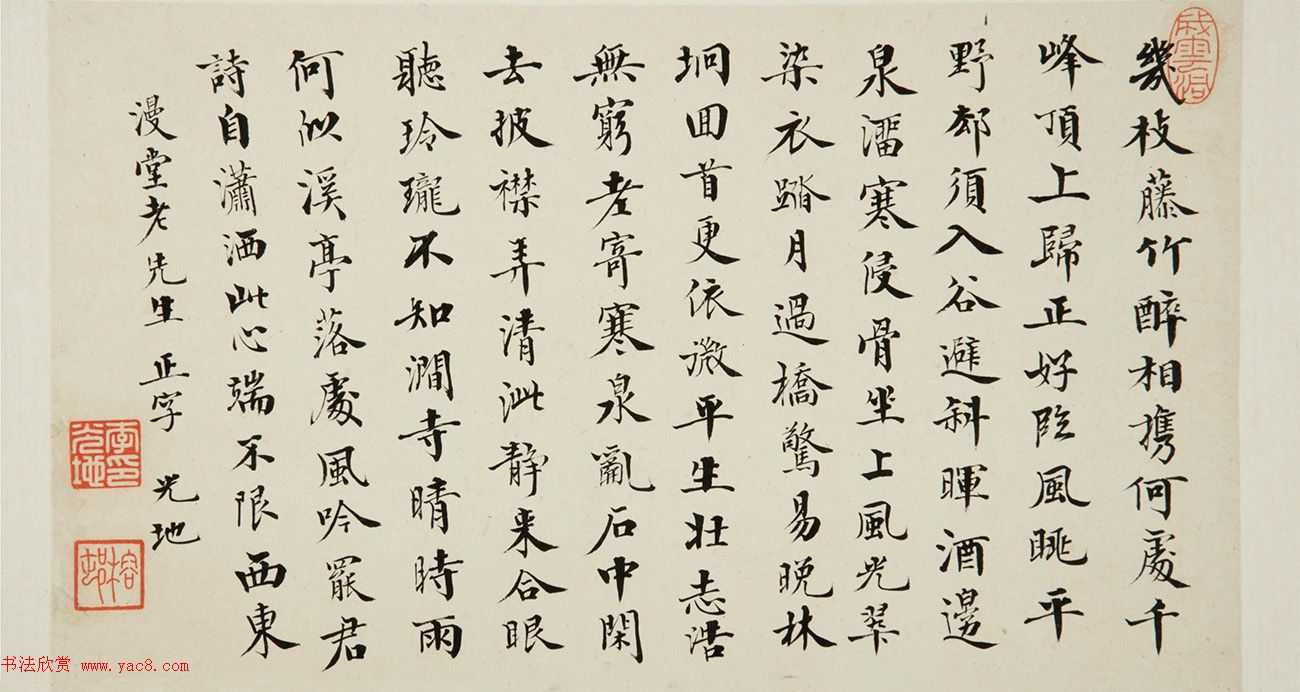 幾枝藤竹醉相携何處千
峰頂上歸正好臨風眺平
野却須入谷避斜暉酒邊
泉溜寒侵骨坐上風光翠
染衣踏月過橋驚易晚林
坰回首更依微平生壯志浩
無窮老寄寒泉亂石中閑
去披襟弄清泚靜来合眼
聽玲瓏不知澗寺晴時雨
何似溪亭落處風吟罷君
詩自瀟洒此心端不限西東
漫堂老先生 正字 光地
李印光地
榕邨
书法欣赏 www.yac8.com